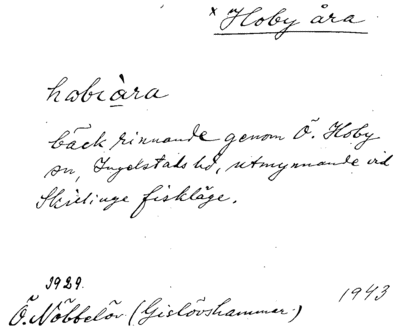 x Hoby åra
hobiàra
bäck rinnande genom Ö. Hoby
sn, Ingelstads hd, utmynnande vid
Skillinge fiskläge.
1929.
Ö. Nöbbelöv (Gislövshammar)
1943